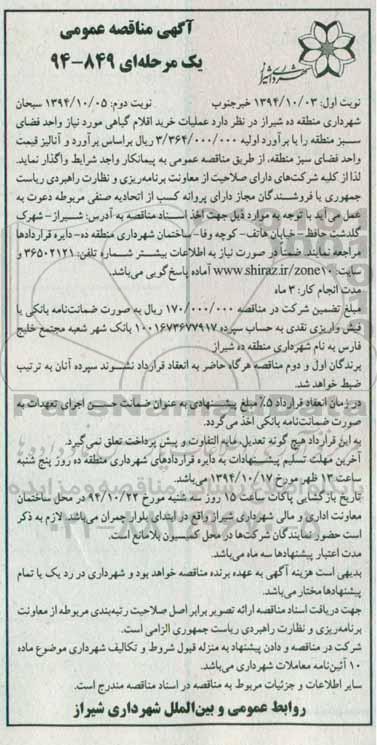 آگهی مناقصه عمومی
یک مرحله‌ای ۸۴۹-۹۴
شهرداری شیراز
نوبت اول: ۱۳۹۴/۱۰/۰۳ خبرجنوب نوبت دوم: ۱۳۹۴/۱۰/۰۵ سبحان
شهرداری منطقه ده شیراز در نظر دارد عملیات خرید اقلام گیاهی مورد نیاز واحد فضای
سبز منطقه را با برآورد اولیه ۳/۳۶۴/۰۰۰/۰۰۰ ریال براساس برآورد و آنالیز قیمت
واحد فضای سبز منطقه، از طریق مناقصه عمومی به پیمانکار واجد شرایط واگذار نماید.
لذا از کلیه شرکت‌های دارای صلاحیت از معاونت برنامه‌ریزی و نظارت راهبردی ریاست
جمهوری یا فروشندگان مجاز دارای پروانه کسب از اتحادیه صنفی مربوطه دعوت به
عمل می‌آید با توجه به موارد ذیل جهت اخذ اسناد مناقصه به آدرس: شیراز- شهرک
گلدشت حافظ- خیابان هاتف- کوچه وفا- ساختمان شهرداری منطقه ده- دایره قراردادها
مراجعه نمایند. ضمناً در صورت نیاز به اطلاعات بیشتر شماره تلفن: ۳۶۵۰۲۱۲۱ و
سایت: www.shiraz.ir/zone10 آماده پاسخ‌گویی می‌باشد.
مدت انجام کار: ۳ ماه
مبلغ تضمین شرکت در مناقصه ۱۷۰/۰۰۰/۰۰۰ ریال به صورت ضمانت‌نامه بانکی یا
فیش واریزی نقدی به حساب سپرده ۱۰۰۱۶۷۳۶۷۷۹۱۷ بانک شهر شعبه مجتمع خلیج
فارس به نام شهرداری منطقه ده شیراز
برندگان اول و دوم مناقصه هرگاه حاضر به انعقاد قرارداد نشوند سپرده آنان به ترتیب
ضبط خواهد شد.
در زمان انعقاد قرارداد ۵٪ مبلغ پیشنهادی به عنوان ضمانت حسن اجرای تعهدات به
صورت ضمانت‌نامه بانکی اخذ می‌گردد.
به این قرارداد هیچ گونه تعدیل، مابه التفاوت و پیش پرداخت تعلق نمی‌گیرد.
آخرین مهلت تسلیم پیشنهادات به دایره قراردادهای شهرداری منطقه ده روز پنج شنبه
ساعت ۱۲ ظهر مورخ ۱۳۹۴/۱۰/۱۷ می‌باشد.
تاریخ بازگشایی پاکات ساعت ۱۵ روز سه شنبه مورخ ۹۴/۱۰/۲۲ در محل ساختمان
معاونت اداری و مالی شهرداری شیراز واقع در ابتدای بلوار چمران می‌باشد. لازم به ذکر
است حضور نمایندگان شرکت‌ها در محل کمیسیون بلامانع است.
مدت اعتبار پیشنهادها سه ماه می‌باشد.
بدیهی است هزینه آگهی به عهده برنده مناقصه خواهد بود و شهرداری در رد یک یا تمام
پیشنهادها مختار می‌باشد.
جهت دریافت اسناد مناقصه ارائه تصویر برابر اصل صلاحیت رتبه‌بندی مربوطه از معاونت
برنامه‌ریزی و نظارت راهبردی ریاست جمهوری الزامی است.
شرکت در مناقصه و دادن پیشنهاد به منزله قبول شروط و تکالیف شهرداری موضوع ماده
۱۰ آئین‌نامه معاملات شهرداری می‌باشد.
سایر اطلاعات و جزئیات مربوط به مناقصه در اسناد مناقصه مندرج است.
روابط عمومی و بین‌الملل شهرداری شیراز